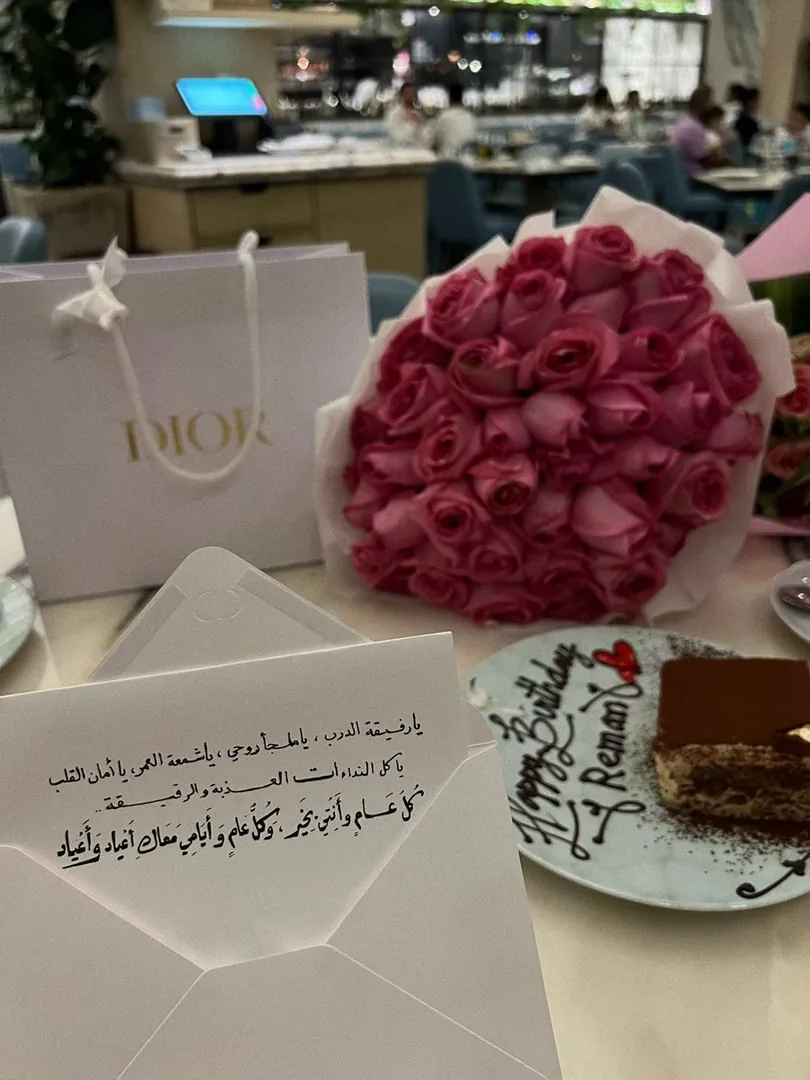 DIOR
يا رفيقة الدرب ، يا ملجأ روحي ، يا شمعة العمر، يا أمان القلب
يا كل النداءات العـذبة والرقيـقة ..
كُلّ عَـامٍ وأَنتِي بِخَير ، وَكُلّ عَامٍ وَأَيَامِي مَعَاكِ أَعْيَاد وَأَعْيَاد
Happy Birthday
Reman